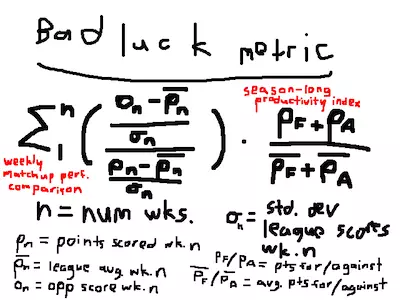 Bad luck metric
season-long
productivity index
n
∑ ( (o_n - p̅_n)/σ_n / (p_n - p̅_n)/σ_n ) · (P_F + P_A)/(P̅_F + P̅_A)
1
weekly
matchup perf.
comparison
n = num wks.
σ_n = std. dev
league scores
wk. n
p_n = points scored wk. n
p̅_n = league avg. wk. n
o_n = opp score wk. n
P_F/P_A = pts for/against
P̅_F/P̅_A = avg. pts for/against